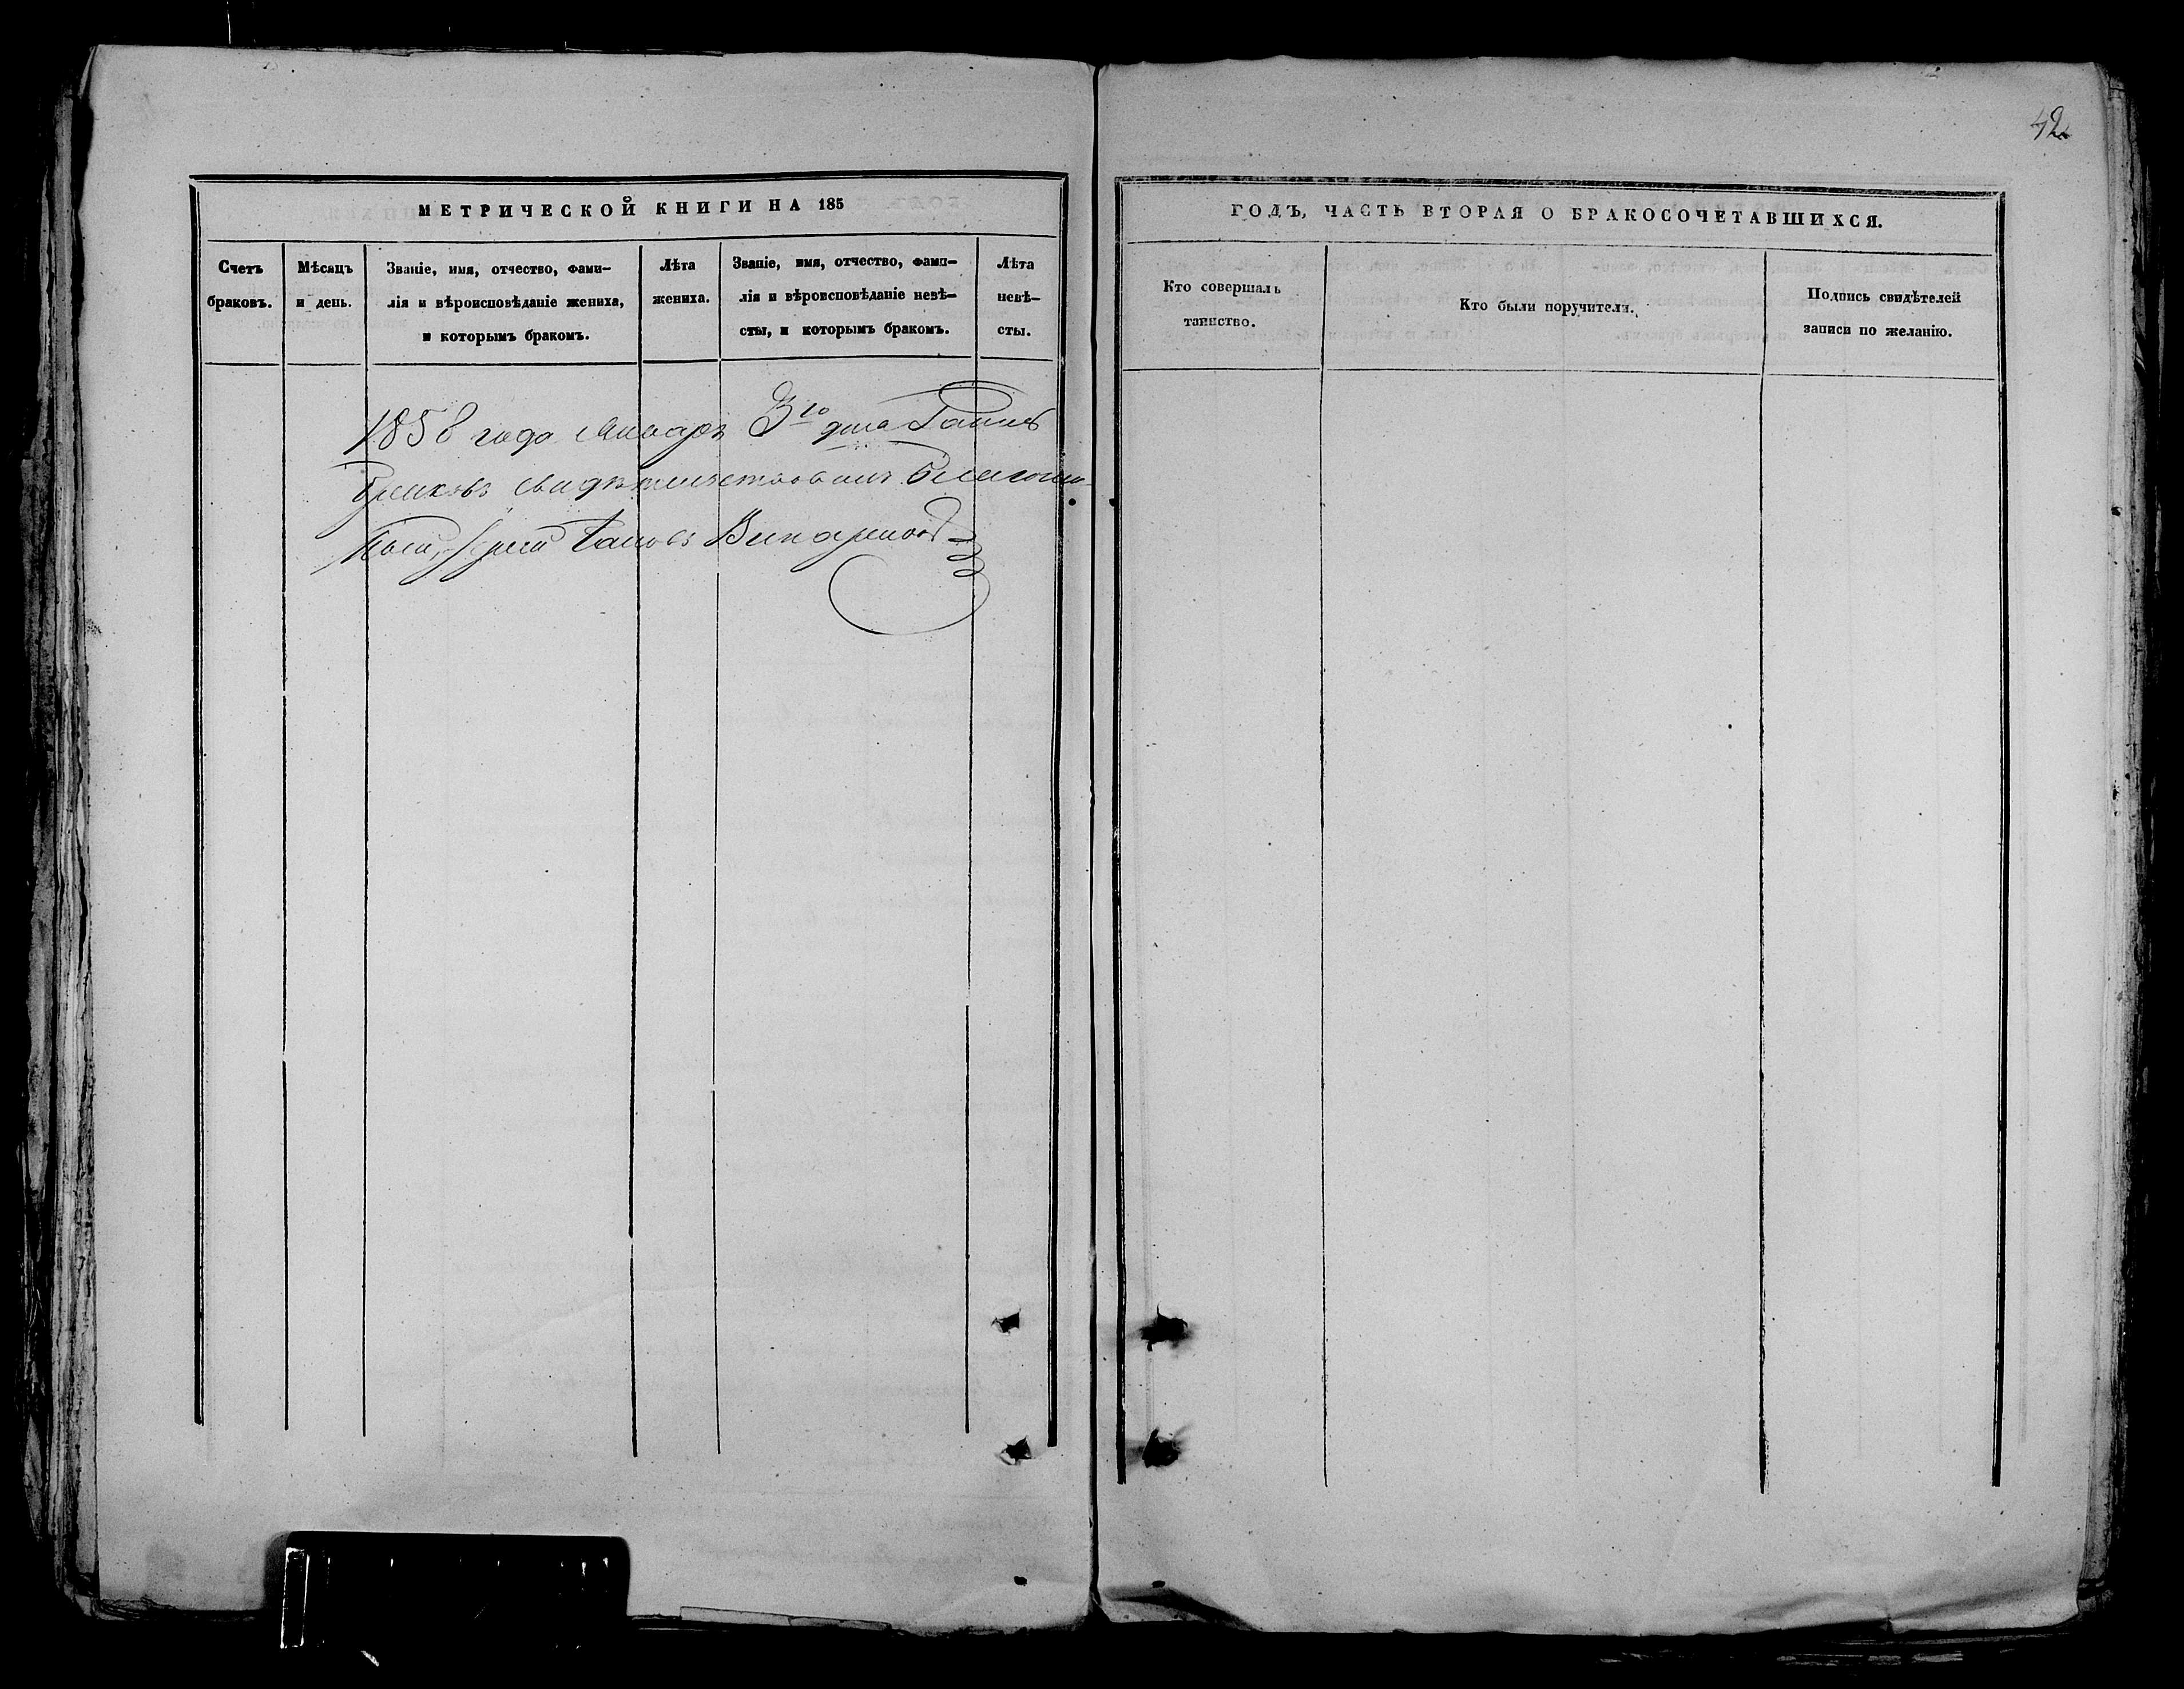 42
МЕТРИЧЕСКОЙ КНИГИ НА 185
Счетъ браковъ.
Мѣсяцъ и день.
Званіе, имя, отчество, фами-
лія и вѣроисповѣданіе жениха,
и которымъ бракомъ.
Лѣта жениха.
Званіе, имя, отчество, фами-
лія и вѣроисповѣданіе невѣ-
сты, и которымъ бракомъ.
Лѣта
невѣ-
сты.
1858 года Января 3го дня
свидѣтельствовалъ Благочин-
ный, Іерей
ГОДЪ, ЧАСТЬ ВТОРАЯ О БРАКОСОЧЕТАВШИХСЯ.
Кто совершалъ
таинство.
Кто были поручители.
Подпись свидѣтелей
записи по желанію.